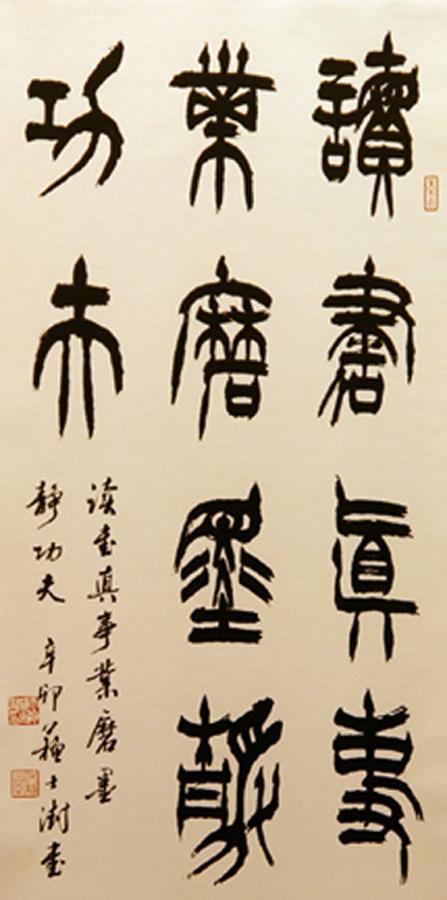 讀書真事
業磨墨靜
功夫
读书真事業磨墨
静功夫 辛卯蘇士澍书